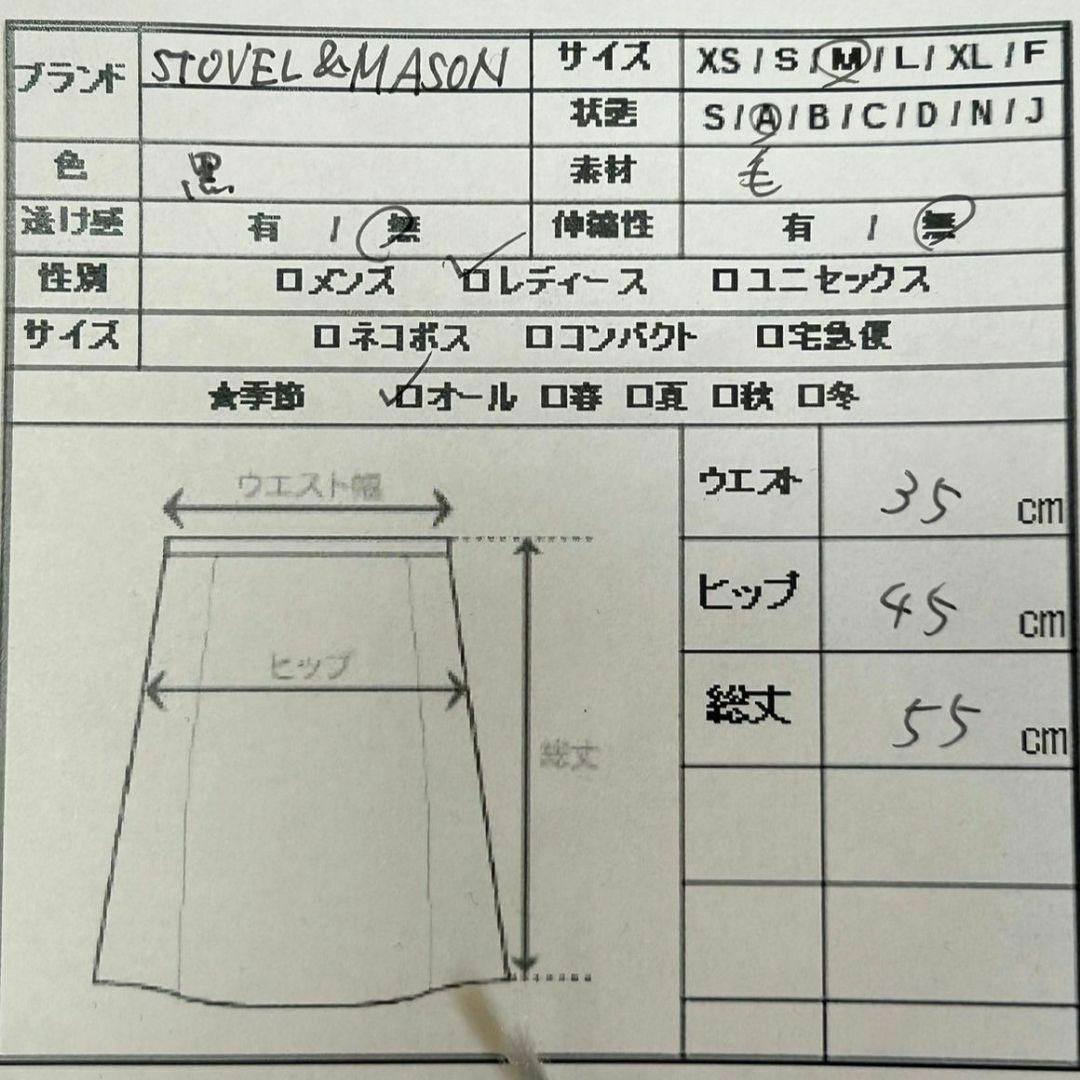 ブランド STOVEL & MASON サイズ XS / S / M / L / XL / F
状態 S / A / B / C / D / N / J
色 黒 素材 毛
透け感 有 / 無 伸縮性 有 / 無
性別 □メンズ □レディース □ユニセックス
サイズ □ネコポス □コンパクト □宅急便
★季節 □オール □春 □夏 □秋 □冬
ウエスト幅
ヒップ
総丈
ウエスト 35 cm
ヒップ 45 cm
総丈 55 cm